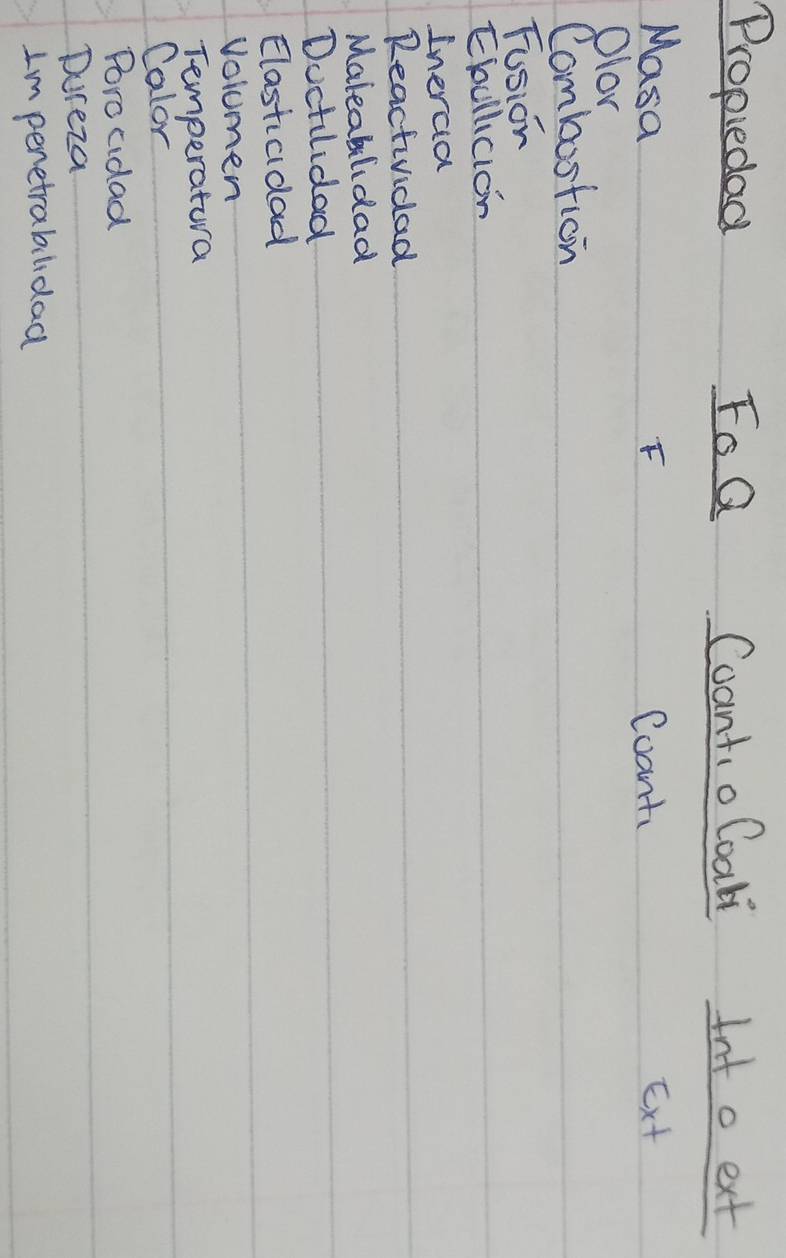 Propiedad F o Q Cuanti o Cuali Int o ext
Masa F Cuanti Ext
Olor
Combustión
Fusión
Ebullición
Inercia
Reactividad
Maleabilidad
Ductilidad
Elasticidad
Volumen
Temperatura
Calor
Porocidad
Dureza
Impenetrabilidad